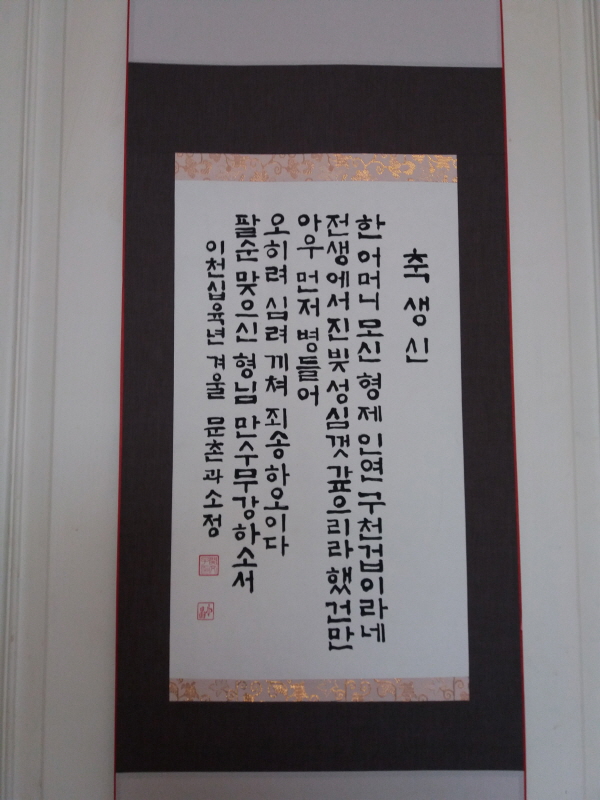 축 생신
한 어머니 모신 형제 인연 구천겁이라네
전생에서 진 빚 성심껏 갚으리라 했건만
아우 먼저 병들어
오히려 심려 끼쳐 죄송하오이다
팔순 맞으신 형님 만수무강하소서
이천십육년 겨울 문촌과 소정